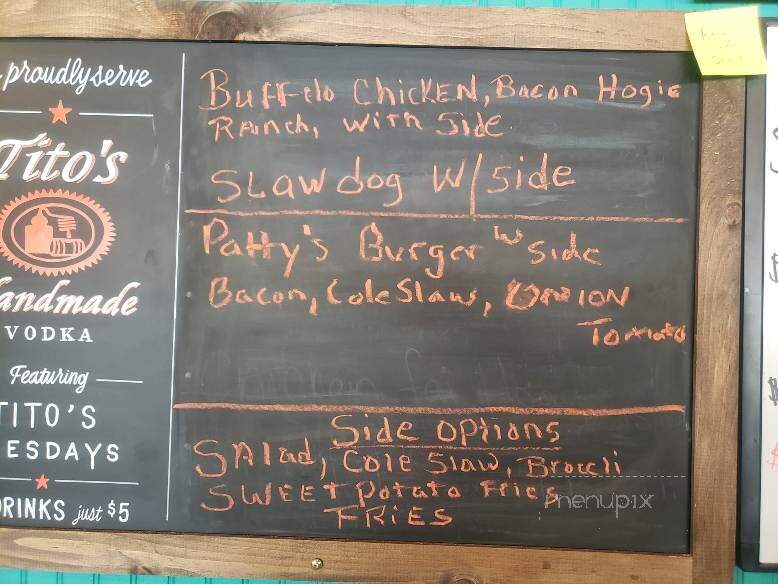 proudly serve
Tito's
andmade
VODKA
Featuring
TITO'S
ESDAYS
RINKS just $5
Buffelo Chicken, Bacon Hogie
Ranch, with Side.
Slaw dog w/side
Patty's Burger w Side
Bacon, Cole Slaw, Onion
Tomato
Side options
Salad, Cole Slaw, Broceli
Sweet Potato Fries
FRIES
menupix